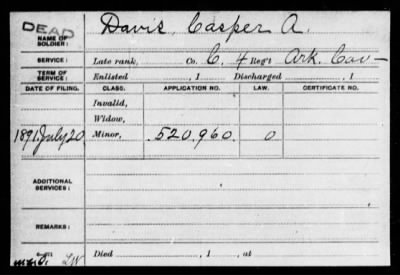 DEAD
NAME OF SOLDIER: Davis, Casper A.
SERVICE: Late rank, Co. C, 4 Reg't Ark. Cav —
TERM OF SERVICE: Enlisted , 1 Discharged , 1
DATE OF FILING. CLASS. APPLICATION NO. LAW. CERTIFICATE NO.
Invalid,
Widow,
1891 July 20 Minor, 520,960 0
ADDITIONAL SERVICES:
REMARKS:
Died , 1 , at